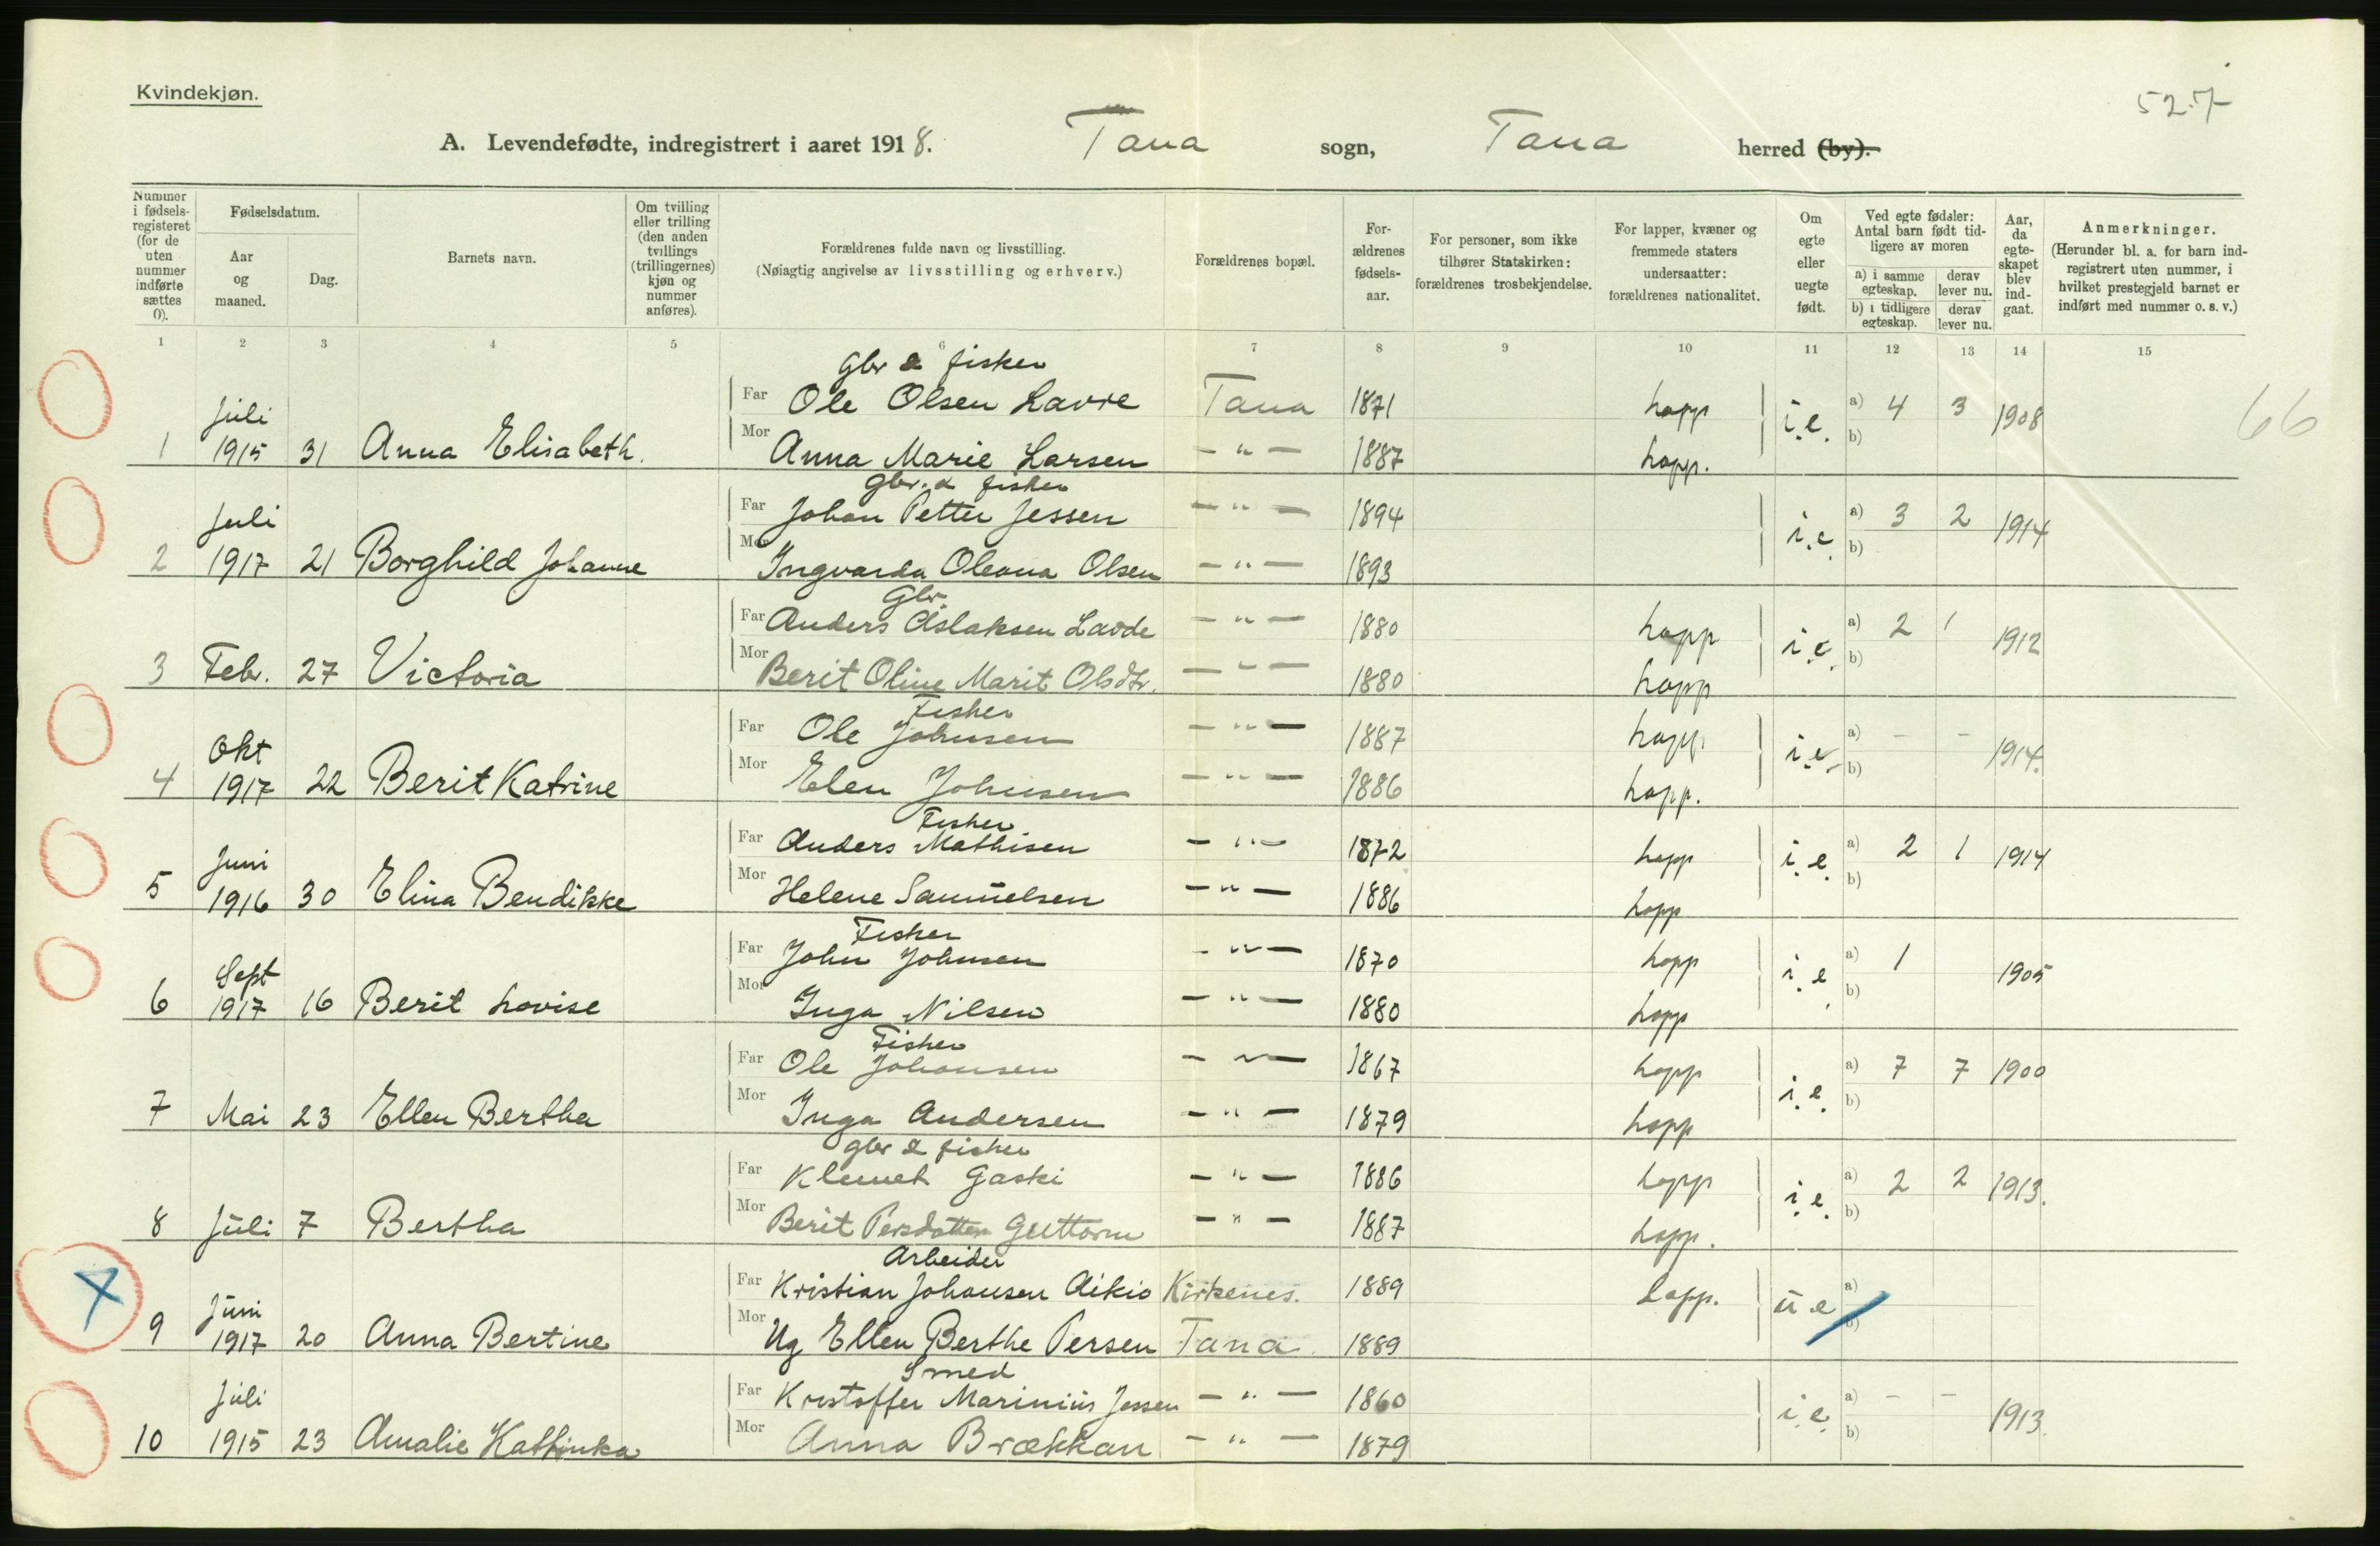 Kvindekjøn.
52.7
A. Levendefødte, indregistrert i aaret 1918. Tana sogn, Tana herred (by).
Nummer i fødselsregisteret (for de uten nummer indførte sættes 0).
Fødselsdatum.
Aar og maaned.
Dag.
Barnets navn.
Om tvilling eller trilling (den anden tvillings (trillingernes) kjøn og nummer anføres).
Forældrenes fulde navn og livsstilling.
(Nøiagtig angivelse av livsstilling og erhverv.)
Forældrenes bopæl.
Forældrenes fødselsaar.
For personer, som ikke tilhører Statskirken: forældrenes trosbekjendelse.
For lapper, kvæner og fremmede staters undersaatter: forældrenes nationalitet.
Om egte eller uegte født.
Ved egte fødsler: Antal barn født tidligere av moren
a) i samme egteskap. derav lever nu.
b) i tidligere egteskap. derav lever nu.
Aar, da egteskapet blev indgaat.
Anmerkninger.
(Herunder bl. a. for barn indregistrert uten nummer, i hvilket prestegjeld barnet er indført med nummer o. s. v.)
1 2 3 4 5 6 7 8 9 10 11 12 13 14 15
Gbr & fisker
Far Ole Olsen Lavre Tana 1871 Lapp a) 4 3
66
1 Juli 1915 31 Anna Elisabeth. i.e. 1908
Mor Anna Marie Larsen - " - 1887 Lapp. b)
Gbr. & fisker
Far Johan Petter Jessen - " - 1894 a) 3 2
2 Juli 1917 21 Borghild Johanne i.e. 1914
Mor Ingvarda Oleana Olsen - " - 1893 b)
Gbr.
Far Anders Aslaksen Lavde - " - 1880 Lapp a) 2 1
3 Febr. 27 Victoria i.e. 1912
Mor Berit Oline Marit Olsdtr. - " - 1880 Lapp b)
Fisker
Far Ole Johnsen - " - 1887 Lapp. a) - -
4 Okt 1917 22 Berit Katrine i.e. 1914.
Mor Elen Johnsen - " - 1886 Lapp. b)
Fisker
Far Anders Mathisen - " - 1872 Lapp a) 2 1
5 Juni 1916 30 Elina Bendikke i.e. 1914
Mor Helene Samuelsen - " - 1886 Lapp b)
Fisker
Far John Johnsen - " - 1870 Lapp a) 1
6 Sept 1917 16 Berit Lovise i.e. 1905
Mor Inga Nilsen - " - 1880 Lapp b)
Fisker
Far Ole Johansen - " - 1867 Lapp a) 7 7
7 Mai 23 Ellen Bertha i.e. 1900
Mor Inga Andersen - " - 1879 Lapp b)
gbr & fisker
Far Klemet Gaski - " - 1886 Lapp a) 2 2
8 Juli 7 Bertha i.e. 1913.
Mor Berit Persdatter Guttorm - " - 1887 Lapp. b)
Arbeider
Far Kristian Johansen Aikio Kirkenes. 1889 Lapp. a)
9 Juni 1917 20 Anna Bertine u.e
Mor Ug Ellen Berthe Persen Tana. 1889 b)
Smed
Far Kristoffer Marinius Jessen - " - 1860 a) - -
10 Juli 1915 23 Amalie Kathinka i.e. 1913.
Mor Anna Brækkan - " - 1879 b)